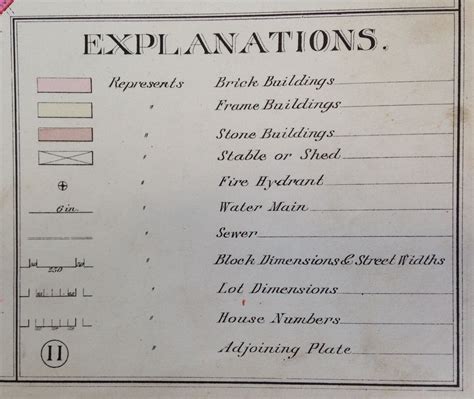 EXPLANATIONS.
Represents Brick Buildings
" Frame Buildings
" Stone Buildings
" Stable or Shed
" Fire Hydrant
6 in. " Water Main
" Sewer
250 " Block Dimensions & Street Widths
" Lot Dimensions
" House Numbers
11 " Adjoining Plate